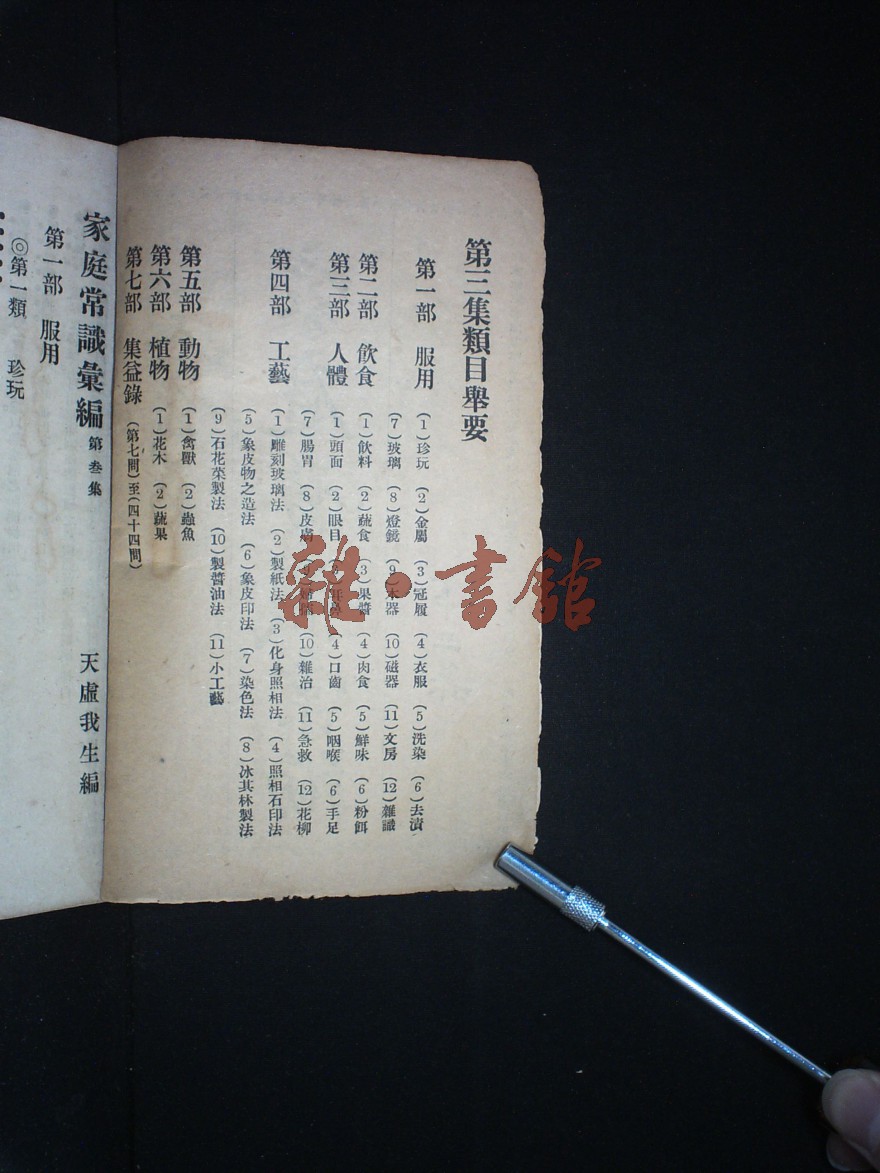 第三集類目舉要
第一部 服用 (1)珍玩 (2)金屬 (3)冠履 (4)衣服 (5)洗染 (6)去漬
(7)玻璃 (8)燈鏡 (9)木器 (10)磁器 (11)文房 (12)雜識
第二部 飲食 (1)飲料 (2)蔬食 (3)果醬 (4)肉食 (5)鮮味 (6)粉餌
第三部 人體 (1)頭面 (2)眼目 (4)口齒 (5)咽喉 (6)手足
(7)腸胃 (8)皮膚 (10)雜治 (11)急救 (12)花柳
第四部 工藝 (1)雕刻玻璃法 (2)製紙法 (3)化身照相法 (4)照相石印法
(5)象皮物之造法 (6)象皮印法 (7)染色法 (8)冰其林製法
(9)石花菜製法 (10)製醬油法 (11)小工藝
第五部 動物 (1)禽獸 (2)蟲魚
第六部 植物 (1)花木 (2)蔬果
第七部 集益錄 (第七問)至(四十四問)
家庭常識彙編 第叁集 天虛我生編
第一部 服用
◎第一類 珍玩
雜·書館